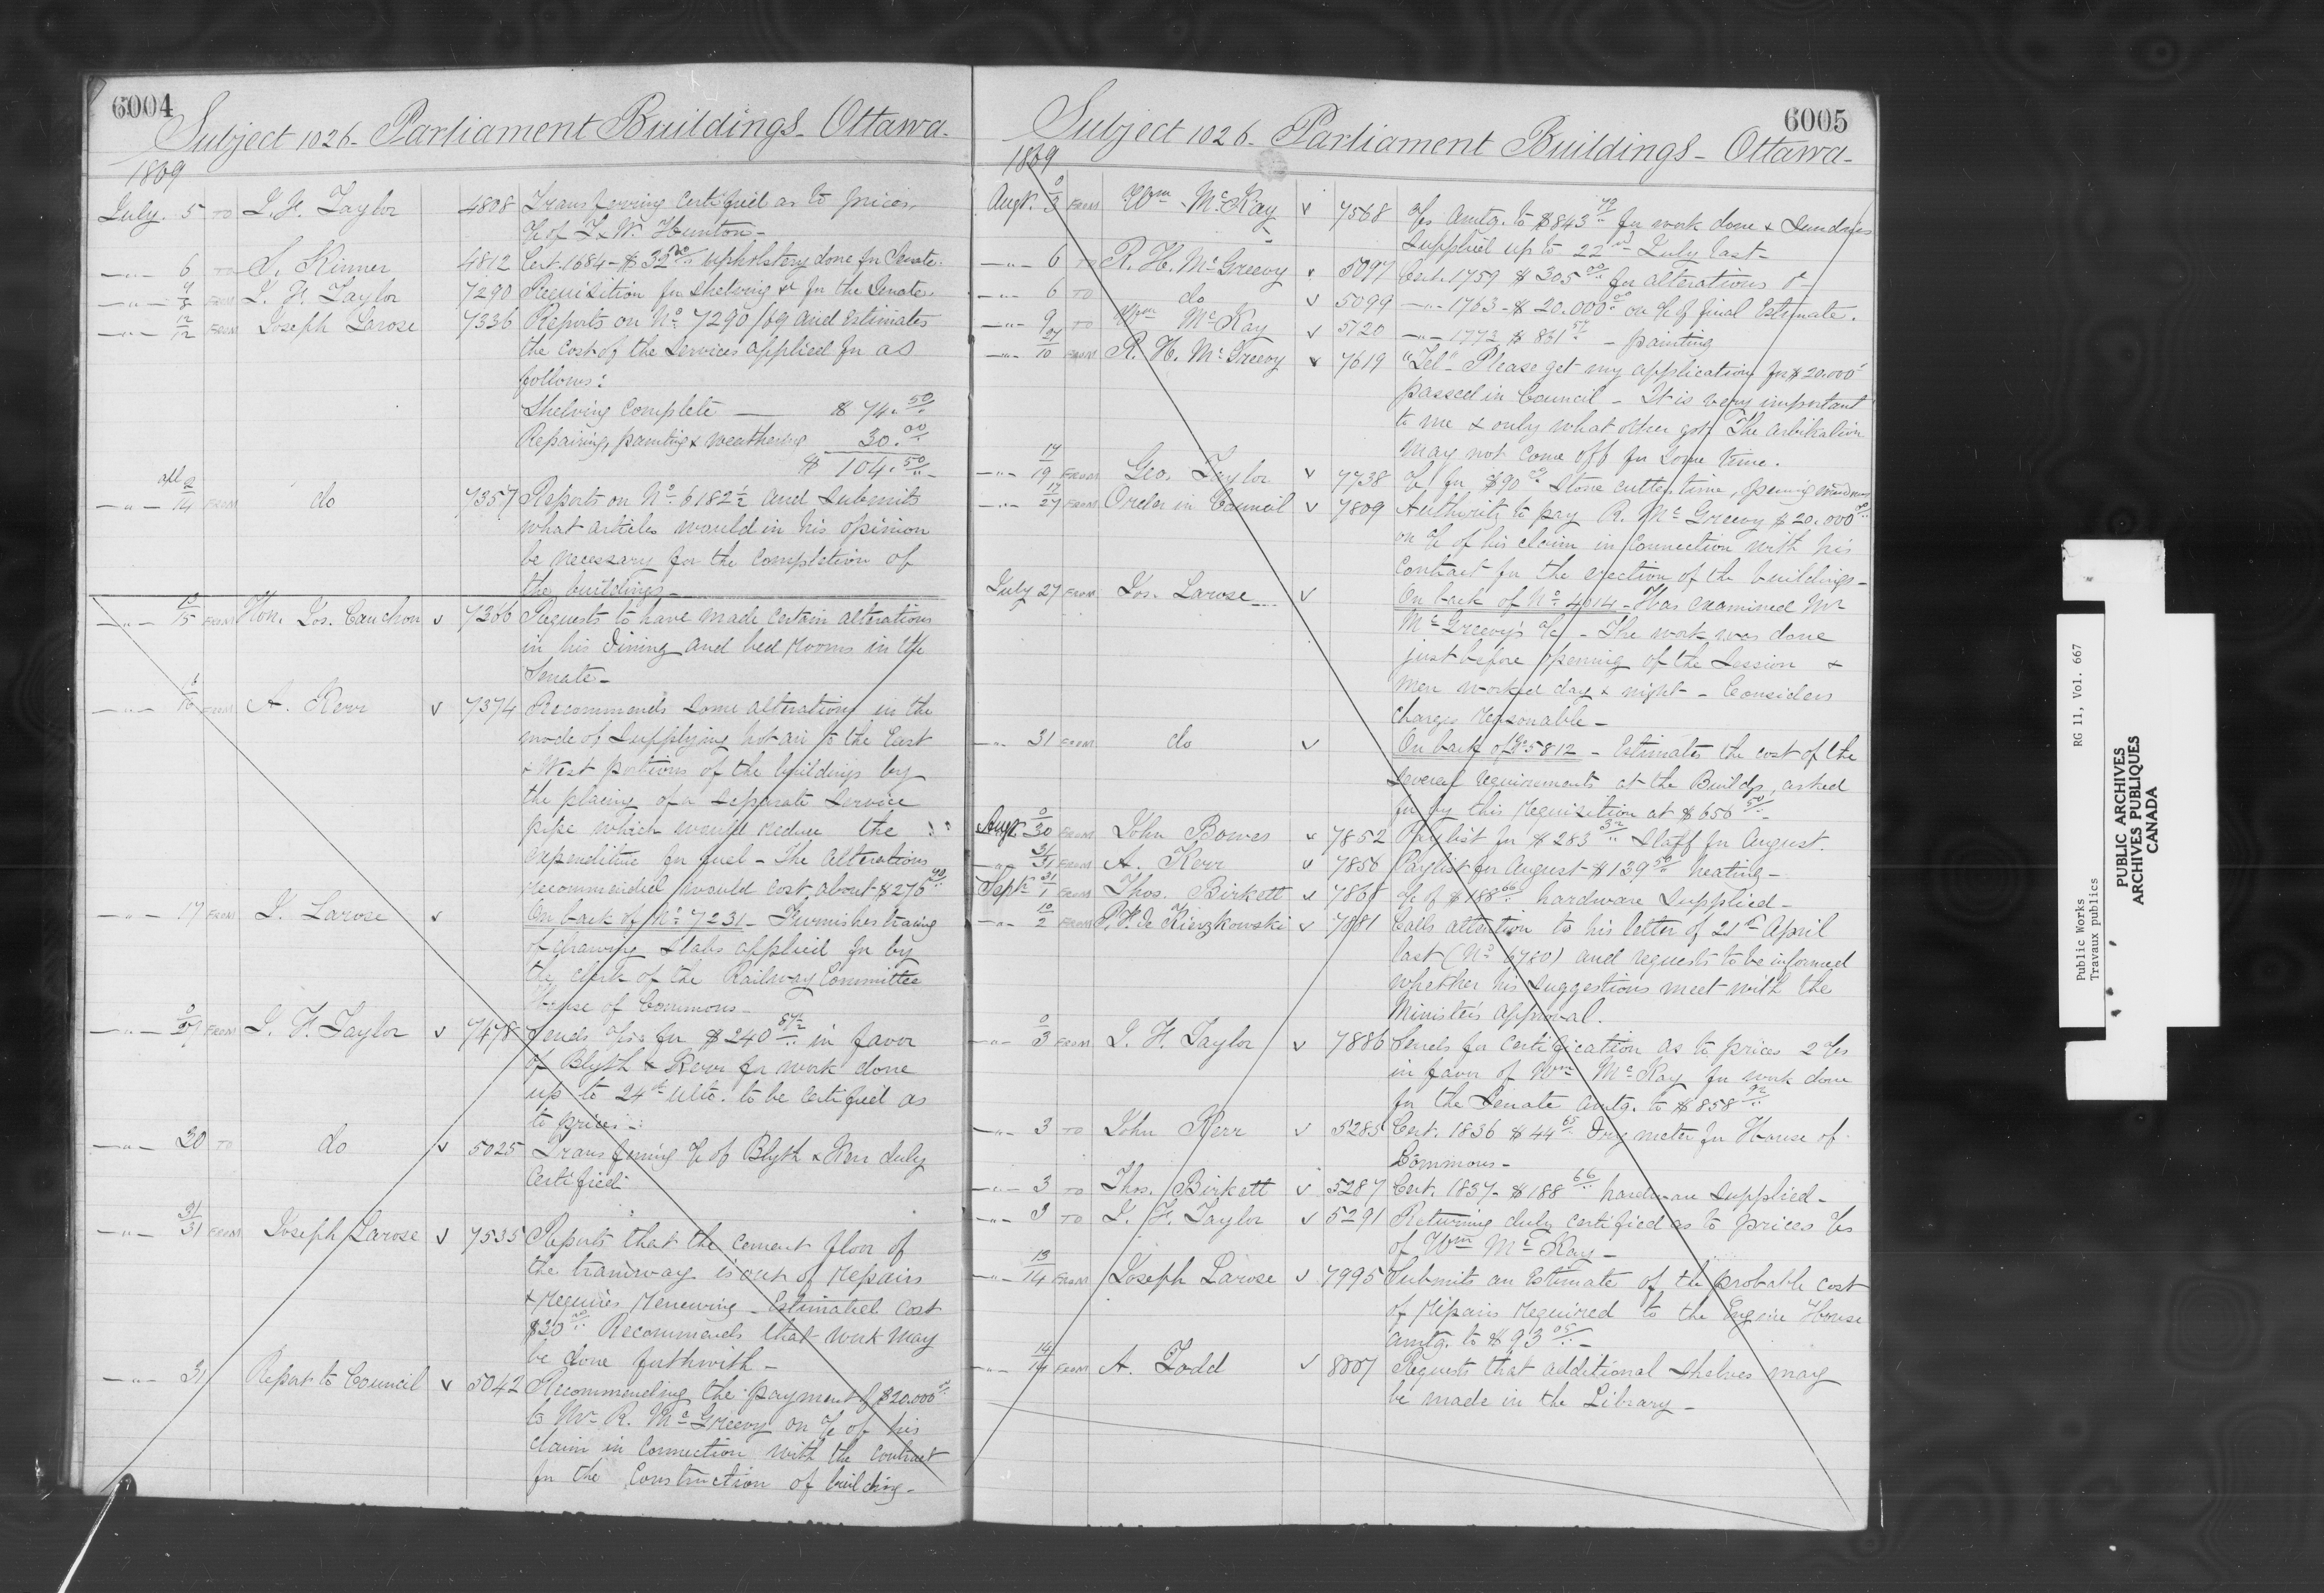 6004
Subject 1026 - Parliament Buildings - Ottawa -
1869
July 5 TO J. F. Taylor 4808 Transferring Certified as to prices
a/c of T. & W. Hunton -
-"- 6 TO S. Kinner 4812 Cert. 1684 - $32 upholstery done for Senate.
-"- 9/8 FROM J. F. Taylor 7290 Requisition for Shelving &c for the Senate.
-"- 12/12 FROM Joseph Larose 7336 Reports on No 7290/69 and Estimates
the cost of the Services applied for as
follows:
Shelving Complete — $ 74.50
Repairing, painting & weathering 30.00
$ 104.50
-"- 2/14 FROM do 7357 Reports on No 6182½ and Submits
what articles would in his opinion
be necessary for the Completion of
the buildings -
-"- 15 FROM Hon. Jos. Cauchon v 7366 Requests to have made certain alterations
in his dining and bed rooms in the
Senate -
-"- 16 FROM A. Kerr v 7374 Recommends some alterations in the
mode of Supplying hot air to the East
& West portions of the buildings by
the placing of a separate Service
pipe which would reduce the
expenditure for fuel - The alterations
recommended would cost about $276
-"- 17 FROM J. Larose v On back of No 7231 - Furnishes tracing
of drawing Slabs applied for by
the Clerk of the Railway Committee
House of Commons -
-"- 27 FROM J. F. Taylor v 7478 Sends a/cs for $240 87½ in favor
of Blyth & Kerr for work done
up to 24th Ulto. to be certified as
to prices -
-"- 30 TO do v 5025 Transferring a/c of Blyth & Kerr duly
Certified
-"- 31/31 FROM Joseph Larose v 7535 Reports that the cement floor of
the tramway is out of repairs
& requires renewing - Estimated cost
$20.00 Recommends that work may
be done forthwith -
-"- 31 Report to Council v 5042 Recommending the payment of $20.000
to Mr R. McGreevy on a/c of his
claim in connection with the Contract
for the Construction of building -
6005
Subject 1026 - Parliament Buildings - Ottawa -
1869
Augt. 0/3 FROM Wm McKay v 7568 a/cs amtg. to $843 79 for work done & Sundries
Supplied up to 22nd July last -
-"- 6 TO R. H. McGreevy v 5097 Cert. 1759 $305 00 for alterations &c -
-"- 6 TO do v 5099 -"- 1763 - $20.000 on a/c of final Estimate.
-"- 9 TO Wm McKay v 5120 -"- 1772 $831 - painting
-"- 10 FROM R. H. McGreevy v 7619 "Tel" - Please get my application for $20.000
passed in Council - It is very important
to me & only what other got The arbitration
may not come off for some time.
-"- 17/19 FROM Geo. Taylor v 7738 a/c for $90 Stone cutters time,
-"- 17/27 FROM Order in Council v 7809 Authority to pay R. McGreevy $20.000
on a/c of his claim in connection with his
Contract for the erection of the buildings -
July 27 FROM Jos. Larose v On back of No 4014 - Has examined Mr
McGreevy's a/c - The work was done
just before opening of the Session &
men worked day & night - Considers
charges reasonable -
-"- 31 FROM do v On back of No 5812 - Estimates the cost of the
several requirements at the Buildgs, asked
for by this requisition at $656 50 -
Augt. 0/30 FROM John Bowes v 7852 Paylist for $283 32 Staff for August.
-"- 31/31 FROM A. Kerr v 7856 Paylist for August $139 50 heating -
Sept. 31/1 FROM Thos. Birkett v 7868 a/c of $188 66 hardware Supplied -
-"- 10/2 FROM de Kierzkowski v 7881 Calls attention to his letter of 21st April
last (No 6720) and requests to be informed
whether his suggestions meet with the
Minister's approval.
-"- 0/3 FROM J. F. Taylor v 7886 Sends for certification as to prices 2 a/cs
in favor of Wm McKay for work done
for the Senate amtg. to $858 92
-"- 3 TO John Kerr v 5285 Cert. 1836 $44 65 Dry meter for House of
Commons -
-"- 3 TO Thos. Birkett v 5287 Cert. 1837 - $188 66 hardware Supplied -
-"- 3 TO J. F. Taylor v 5291 Returning duly certified as to prices a/cs
of Wm McKay -
-"- 13/14 FROM Joseph Larose v 7995 Submits an Estimate of the probable cost
of repairs required to the Engine House
amtg. to $93 05 -
-"- 14/14 FROM A. Todd v 8007 Requests that additional Shelves may
be made in the Library -
Public Works RG 11, Vol. 667
Travaux publics
PUBLIC ARCHIVES
ARCHIVES PUBLIQUES
CANADA